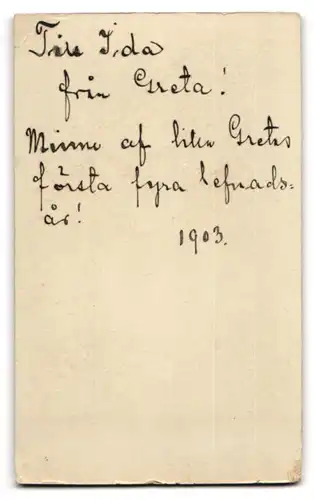 Till Ida
från Greta!
Minne af liten Gretas
första fyra lefnads=
år!
1903.